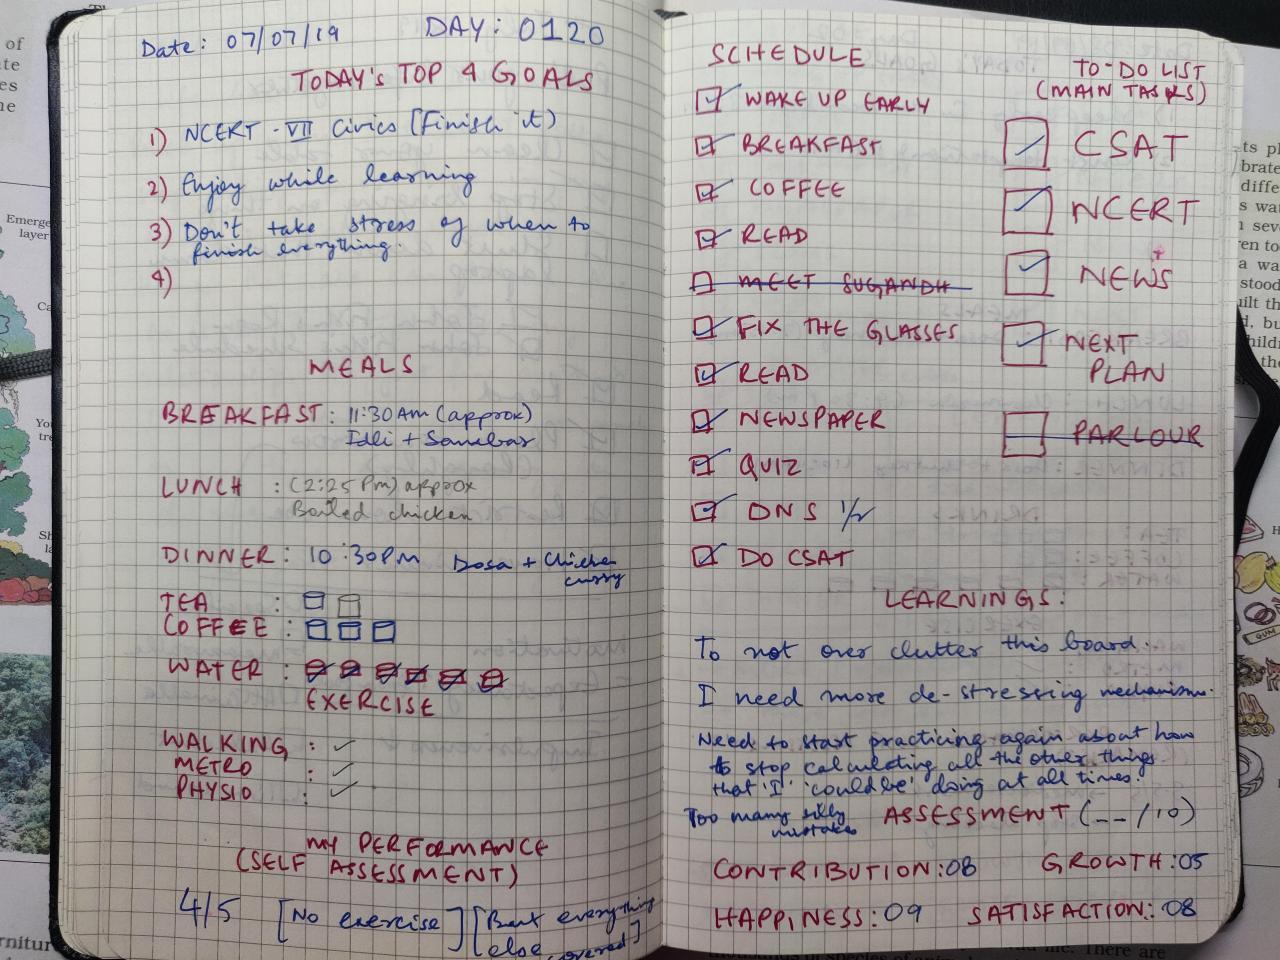 Date: 07/07/19 DAY: 0120
TODAY's TOP 4 GOALS
1) NCERT - VII Civics (Finish it)
2) Enjoy while learning
3) Don't take stress of when to
finish everything.
4)
MEALS
BREAKFAST: 11:30AM (approx)
Idli + Sambar
LUNCH : (2:25 Pm) approx
Boiled chicken
DINNER: 10:30PM Dosa + Chicken
curry
TEA :
COFFEE :
WATER :
EXERCISE
WALKING :
METRO :
PHYSIO :
MY PERFORMANCE
(SELF ASSESSMENT)
4/5 [No exercise] [But everything
else covered]
SCHEDULE
WAKE UP EARLY
BREAKFAST
COFFEE
READ
MEET SUGANDH
FIX THE GLASSES
READ
NEWSPAPER
QUIZ
DNS 1/2
DO CSAT
TO-DO LIST
(MAIN TASKS)
CSAT
NCERT
NEWS
NEXT
PLAN
PARLOUR
LEARNINGS:
To not over clutter this board.
I need more de-stressing mechanisms.
Need to start practicing again about how
to stop calculating all the other things
that 'I' 'could be' doing at all times.
Too many silly
mistakes
ASSESSMENT (_ _ /10)
CONTRIBUTION: 08 GROWTH: 05
HAPPINESS: 09 SATISFACTION: 08
of
ete
es
ne
Emerge
layer
Ca
You
tre
Sh
la
rnitur
ts pl
brate
differ
s wat
n seve
ren to
a wa
stood
uilt th
d, bu
hildi
the